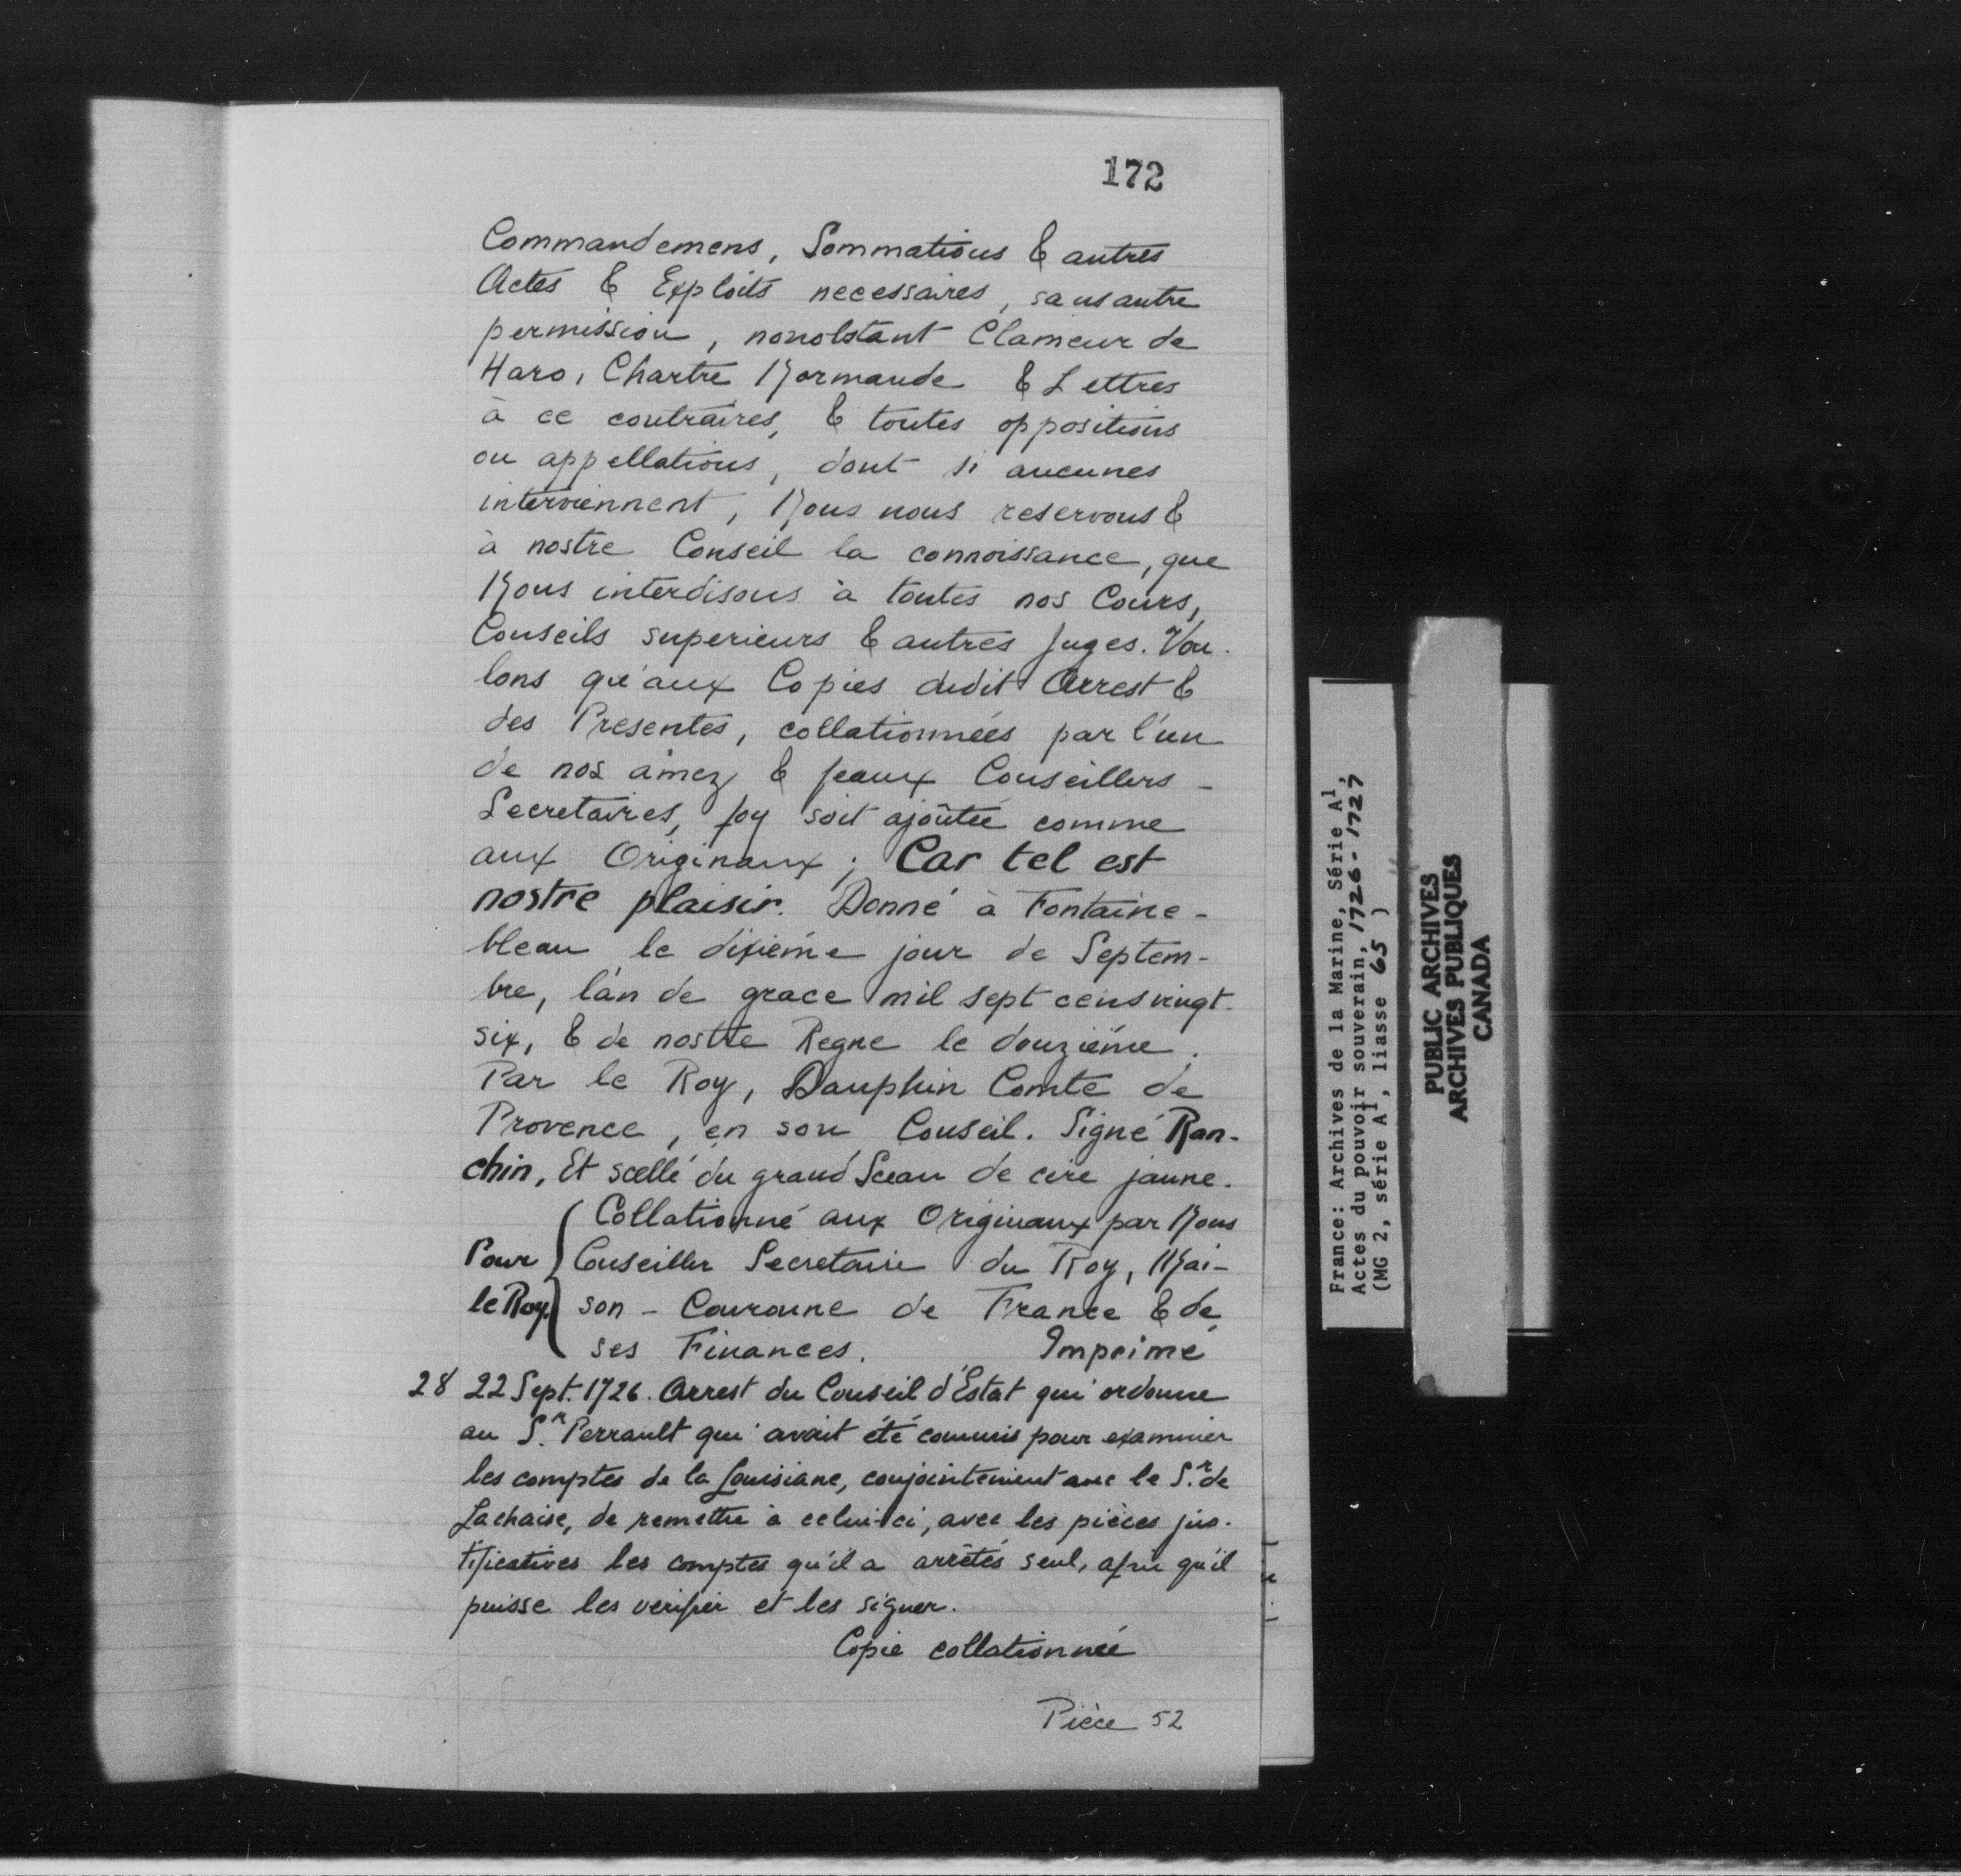 172
Commandemens, Sommations & autres
Actes & Exploits necessaires, sans autre
permission, nonobstant Clameur de
Haro, Chartre Normande & Lettres
à ce contraires, & toutes oppositions
ou appellations, dont si aucunes
interviennent, Nous nous reservons &
à nostre Conseil la connoissance, que
Nous interdisons à toutes nos Cours,
Conseils superieurs & autres Juges. Vou-
lons qu'aux Copies dudit Arrest &
des Presentes, collationnées par l'un
de nos amez & feaux Conseillers -
Secretaires, foy soit ajoûtée comme
aux Originaux; Car tel est
nostre plaisir. Donné à Fontaine-
bleau le dixiéme jour de Septem-
bre, l'an de grace mil sept cens vingt-
six, & de nostre Regne le douziéme.
Par le Roy, Dauphin Comte de
Provence, en son Conseil. Signé Ran-
chin, Et scellé du grand Sceau de cire jaune.
Collationné aux Originaux par Nous
Pour Conseiller Secretaire du Roy, Mai-
le Roy. son - Couronne de France & de
ses Finances. Imprimé
28 22 Sept. 1726. Arrest du Conseil d'Estat qui ordonne
au Sr. Perrault qui avait été commis pour examiner
les comptes de la Louisiane, conjointement avec le Sr. de
Lachaise, de remettre à celui-ci, avec les pièces jus-
tificatives les comptes qu'il a arrêtés seul, afin qu'il
puisse les verifier et les signer.
Copie collationnée
Pièce 52
France: Archives de la Marine, Série A1,
Actes du pouvoir souverain, 1726-1727
(MG 2, série A1, liasse 65 )
PUBLIC ARCHIVES
ARCHIVES PUBLIQUES
CANADA